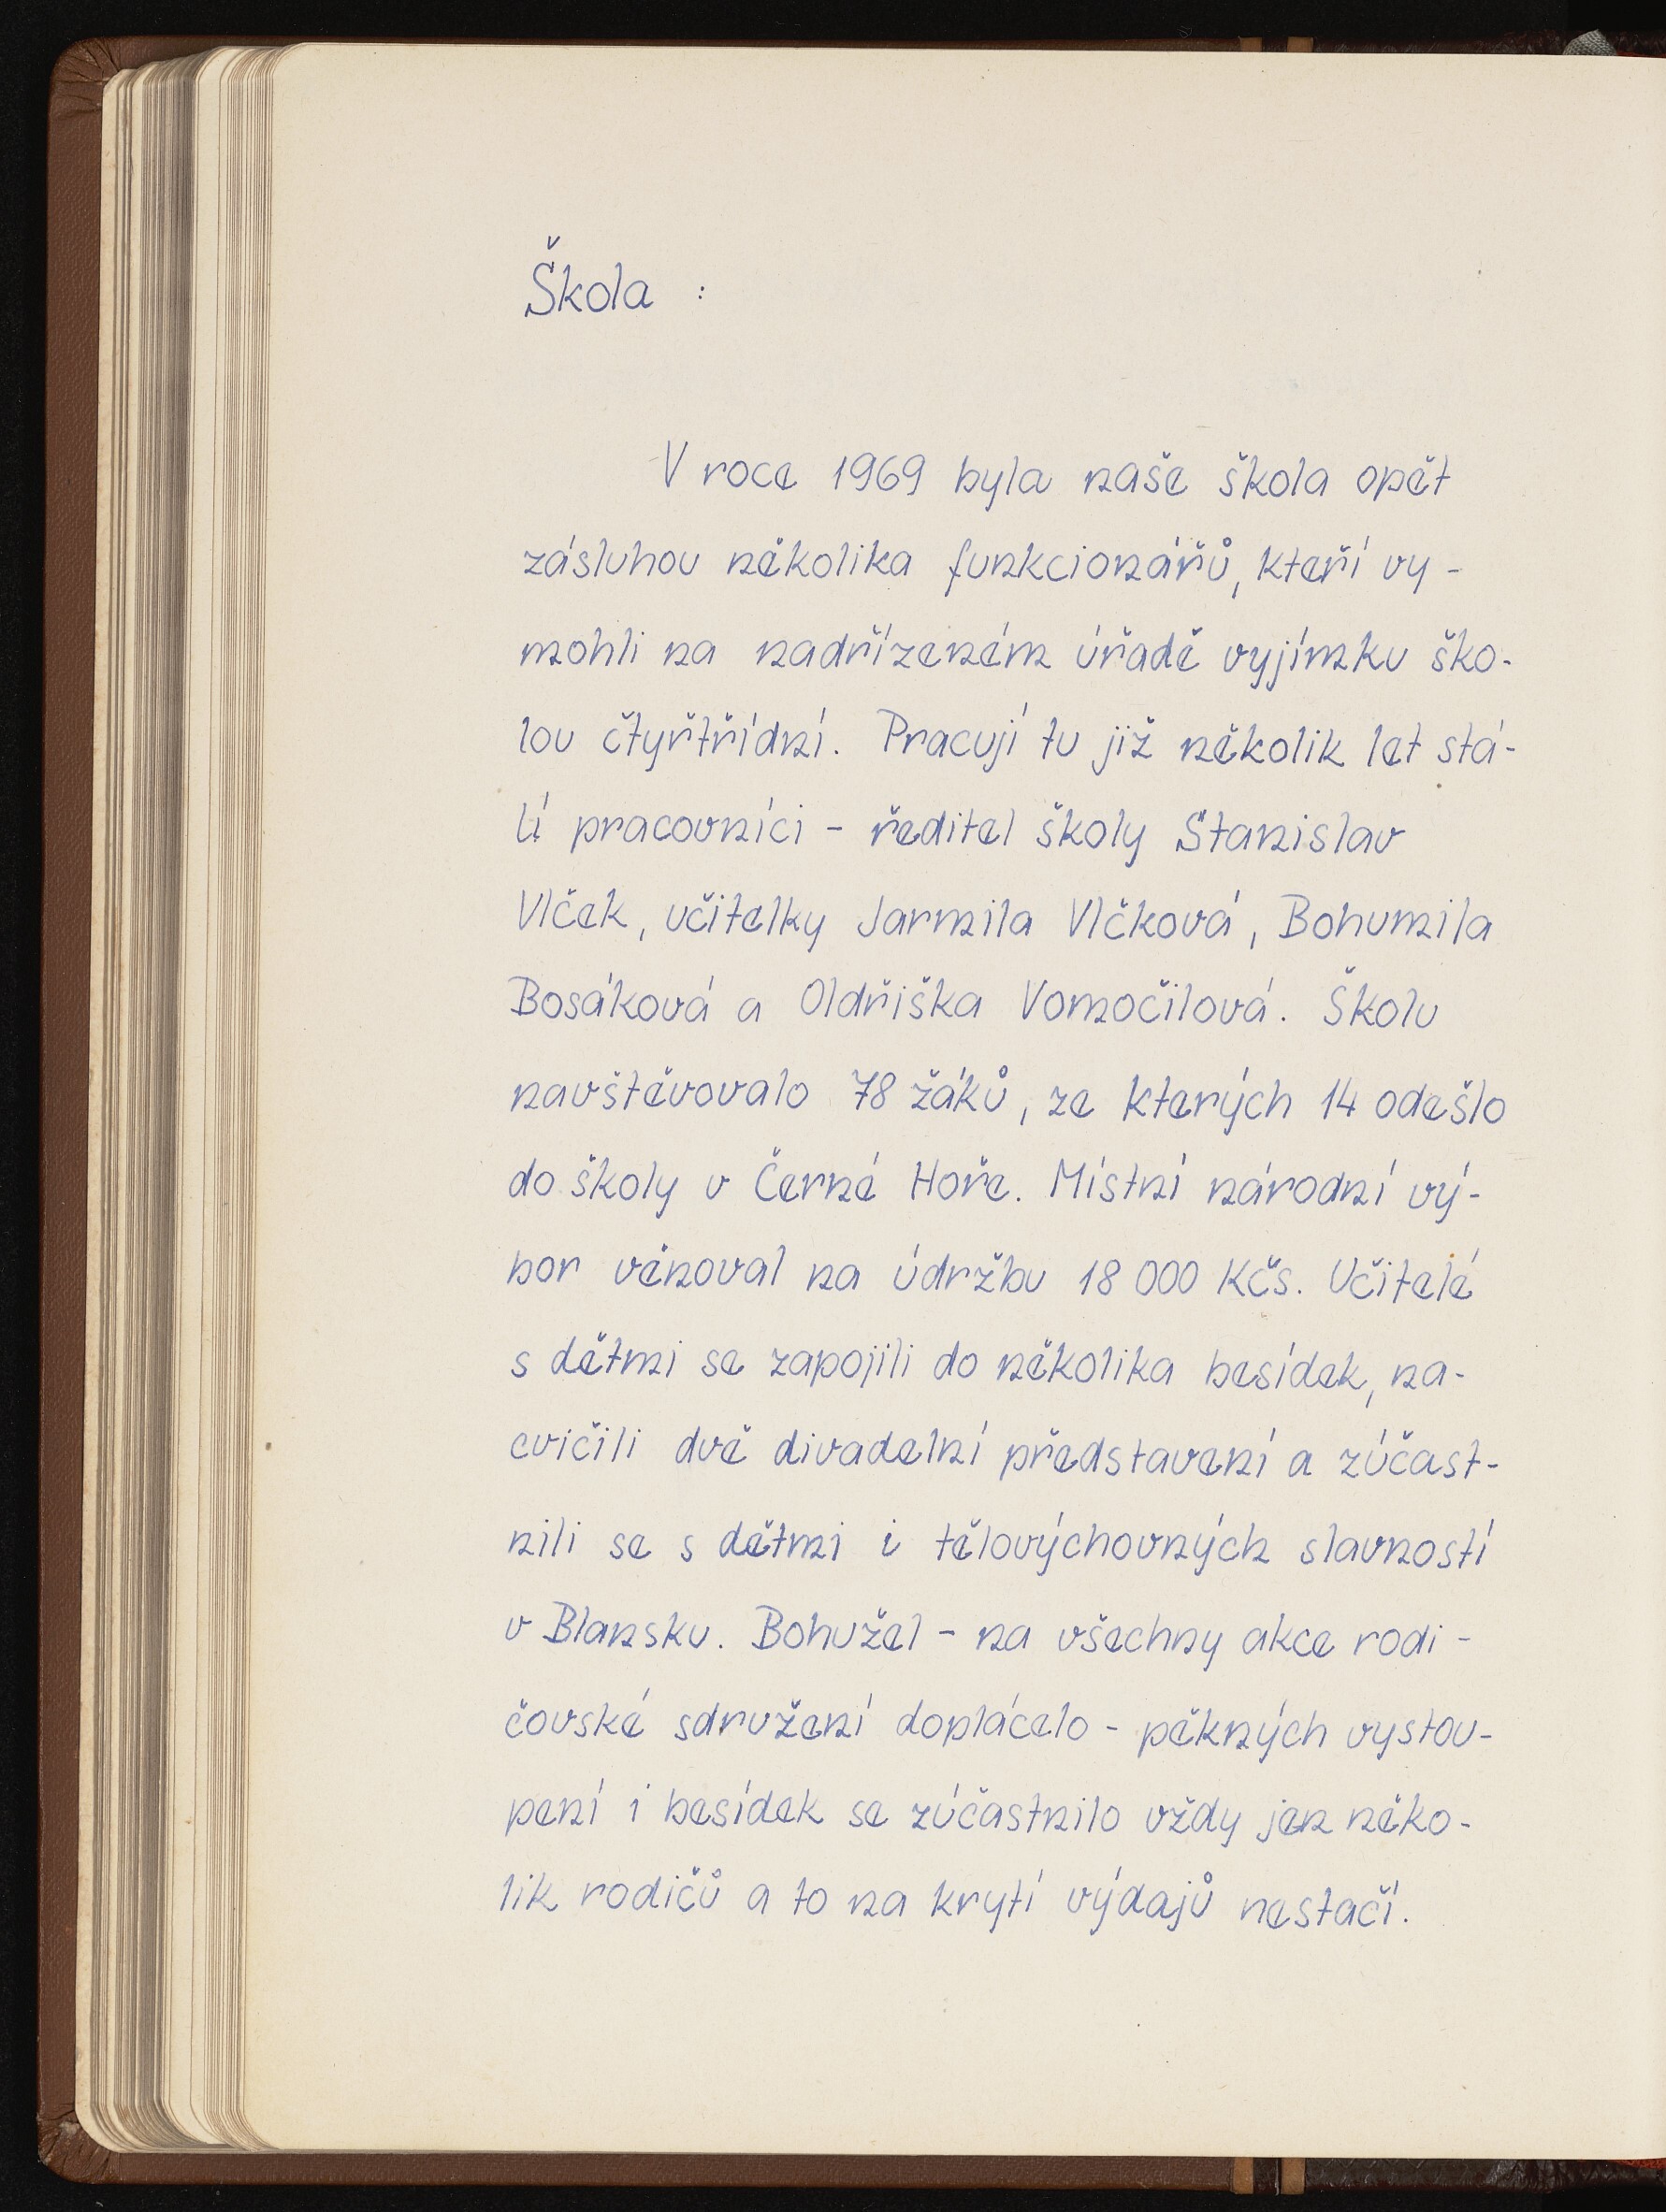 Škola :
V roce 1969 byla naše škola opět
zásluhou několika funkcionářů, kteří vy-
mohli na nadřízeném úřadě vyjímku ško-
lou čtyřtřídní. Pracují tu již několik let stá-
lí pracovníci - ředitel školy Stanislav
Vlček, učitelky Jarmila Vlčková, Bohumila
Bosáková a Oldřiška Vomočilová. Školu
navštěvovalo 78 žáků, ze kterých 14 odešlo
do školy v Černé Hoře. Místní národní vý-
bor věnoval na údržbu 18 000 Kčs. Učitelé
s dětmi se zapojili do několika besídek, na-
cvičili dvě divadelní představení a zúčast-
nili se s dětmi i tělovýchovných slavností
v Blansku. Bohužel - na všechny akce rodi-
čovské sdružení doplácelo - pěkných vystou-
pení i besídek se zúčastnilo vždy jen něko-
lik rodičů a to na krytí výdajů nestačí.